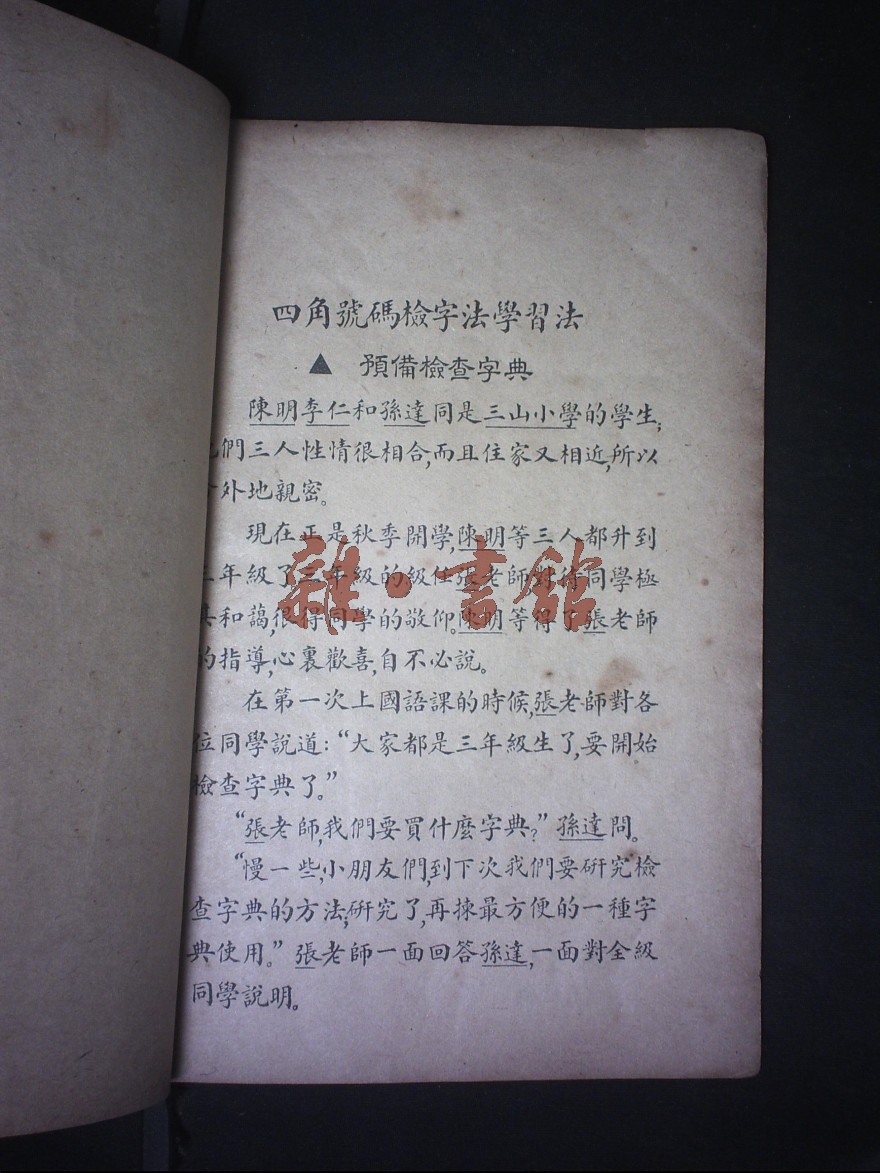 四角號碼檢字法學習法
▲ 預備檢查字典
陳明李仁和孫達同是三山小學的學生,
們三人性情很相合,而且住家又相近,所以
外地親密。
現在正是秋季開學,陳明等三人都升到
三年級了三年級的級任張老師對待同學極
其和藹,很得同學的敬仰。陳明等得了張老師
的指導,心裏歡喜,自不必說。
在第一次上國語課的時候,張老師對各
位同學說道:“大家都是三年級生了,要開始
檢查字典了。”
“張老師,我們要買什麼字典?”孫達問。
“慢一些,小朋友們,到下次我們要研究檢
查字典的方法;研究了,再揀最方便的一種字
典使用。”張老師一面回答孫達,一面對全級
同學說明。
雜·書館